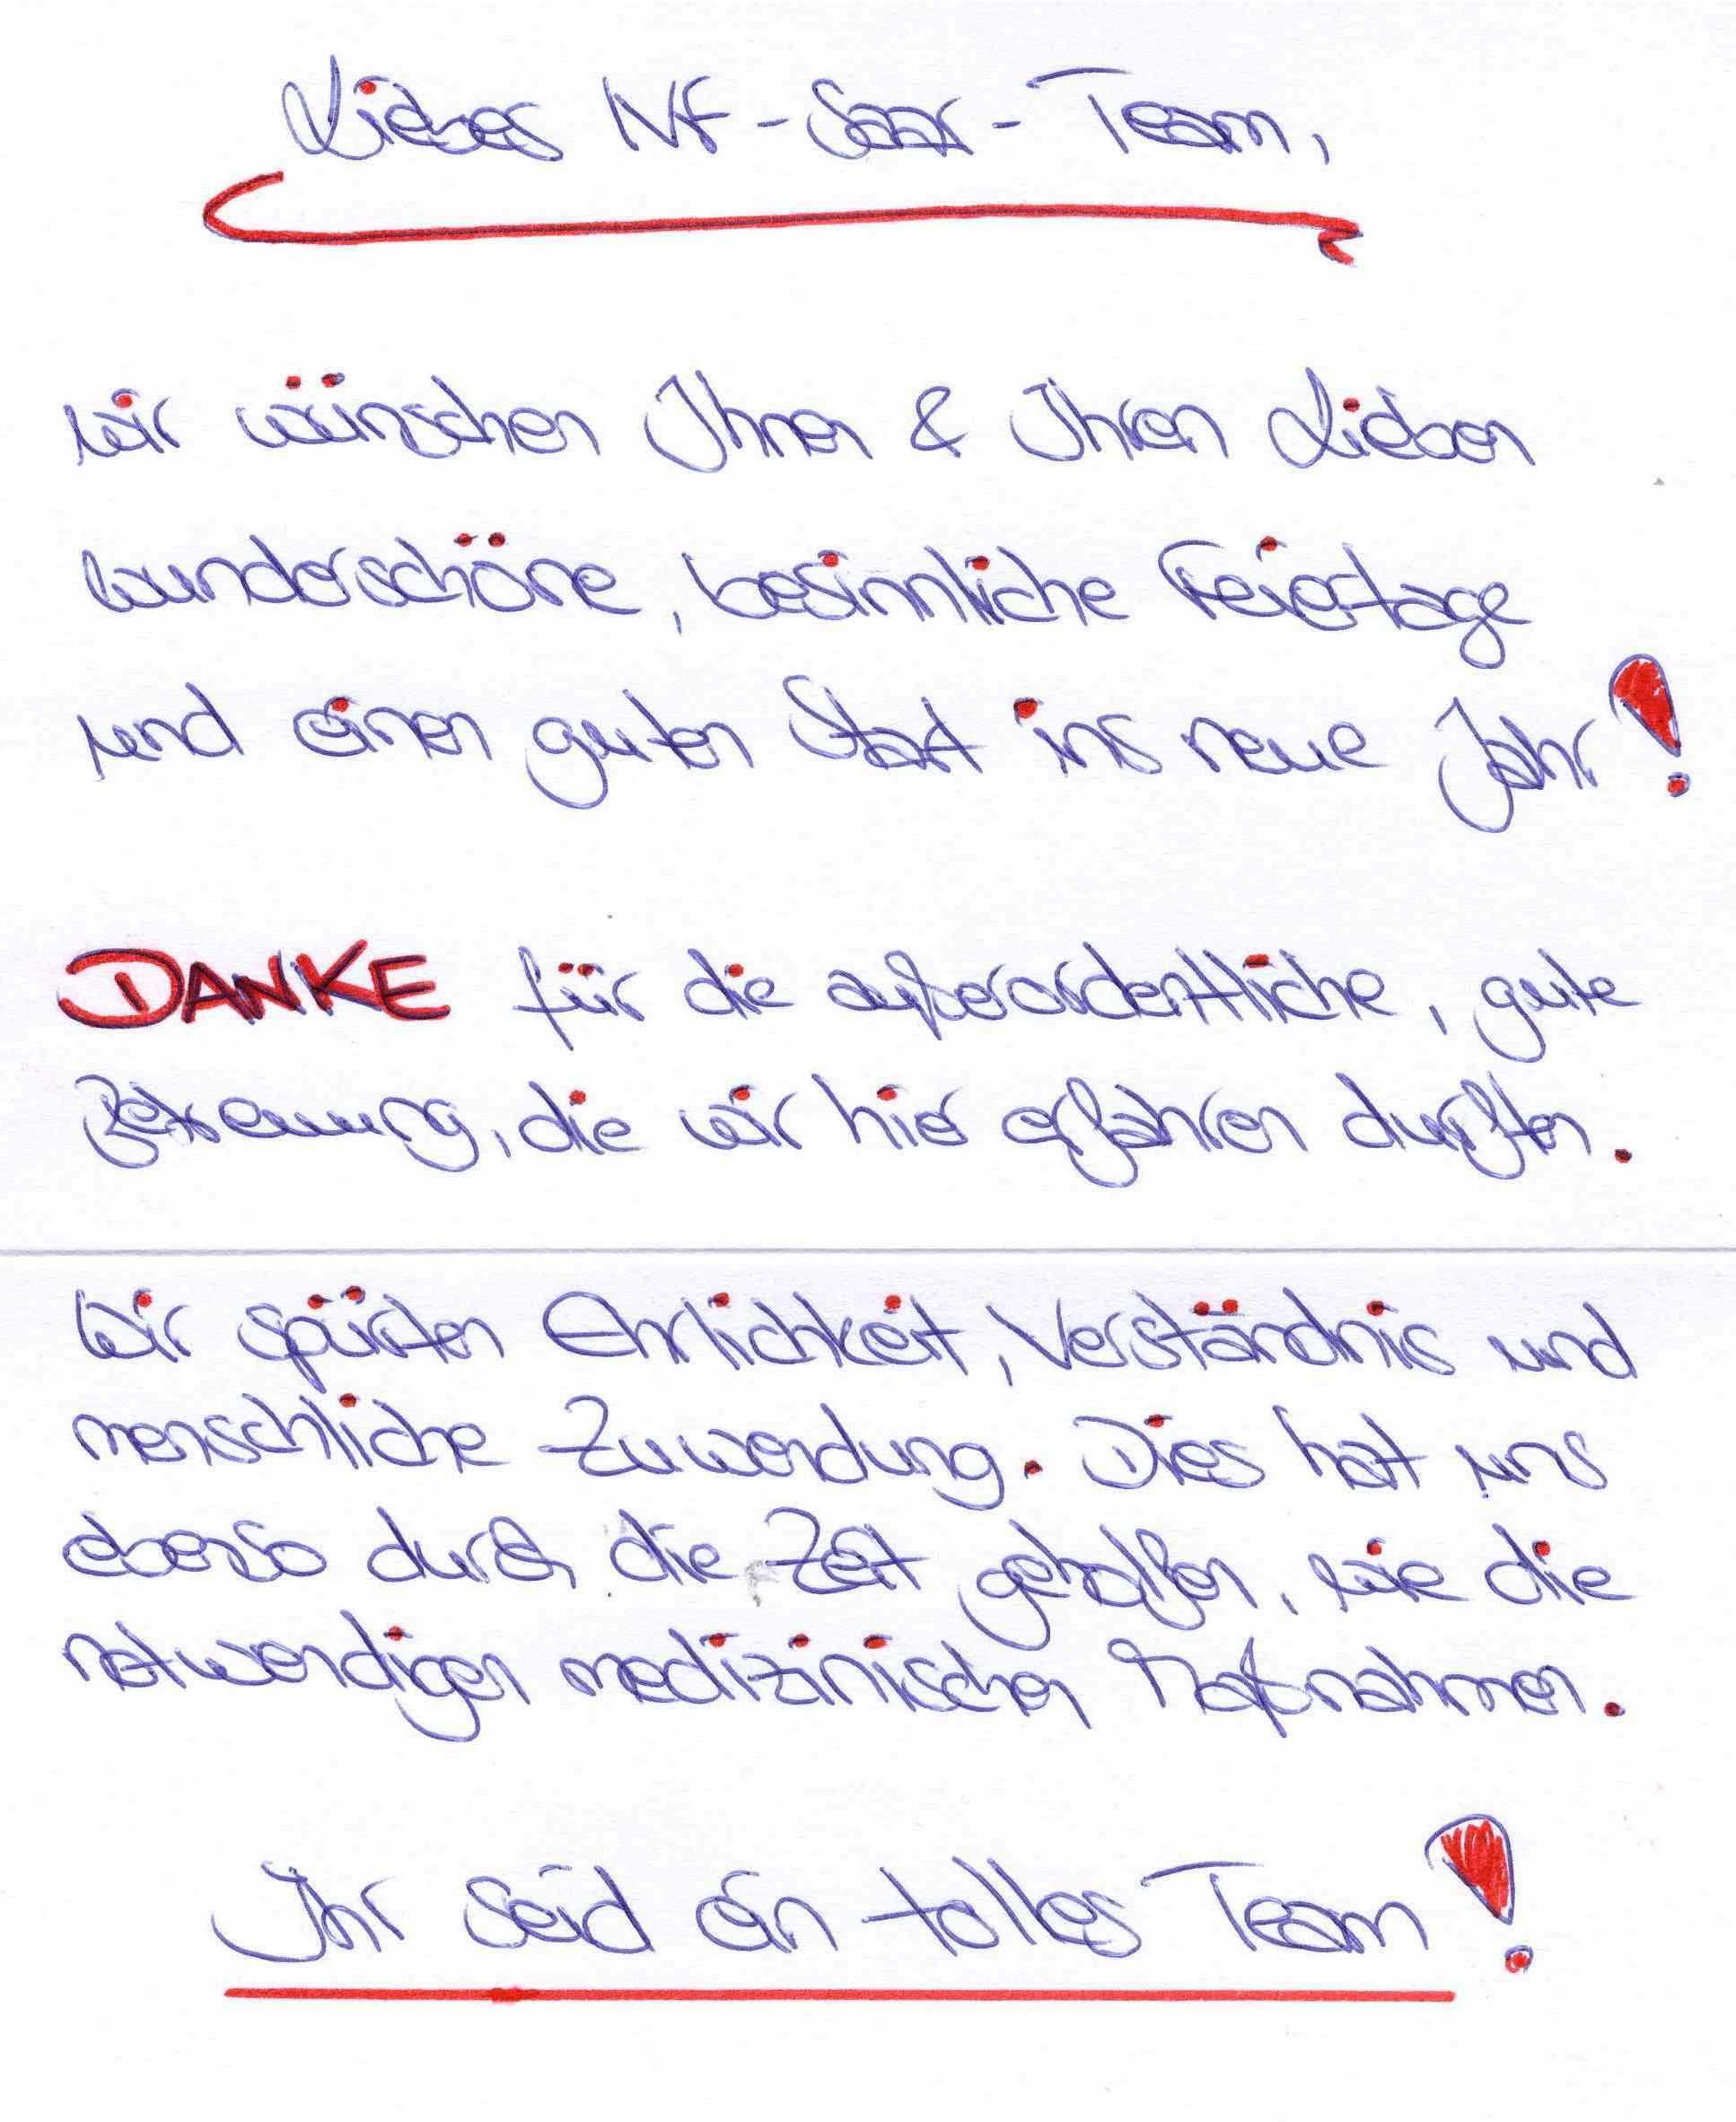 Liebes IVF-Saar-Team,
wir wünschen Ihnen & Ihren Lieben
wunderschöne, besinnliche Feiertage
und einen guten Start ins neue Jahr!
DANKE für die außerordentliche, gute
Betreuung, die wir hier erfahren durften.
Wir spürten Ehrlichkeit, Verständnis und
menschliche Zuwendung. Dies hat uns
ebenso durch die Zeit geholfen, wie die
notwendigen medizinischen Maßnahmen.
Ihr seid ein tolles Team!